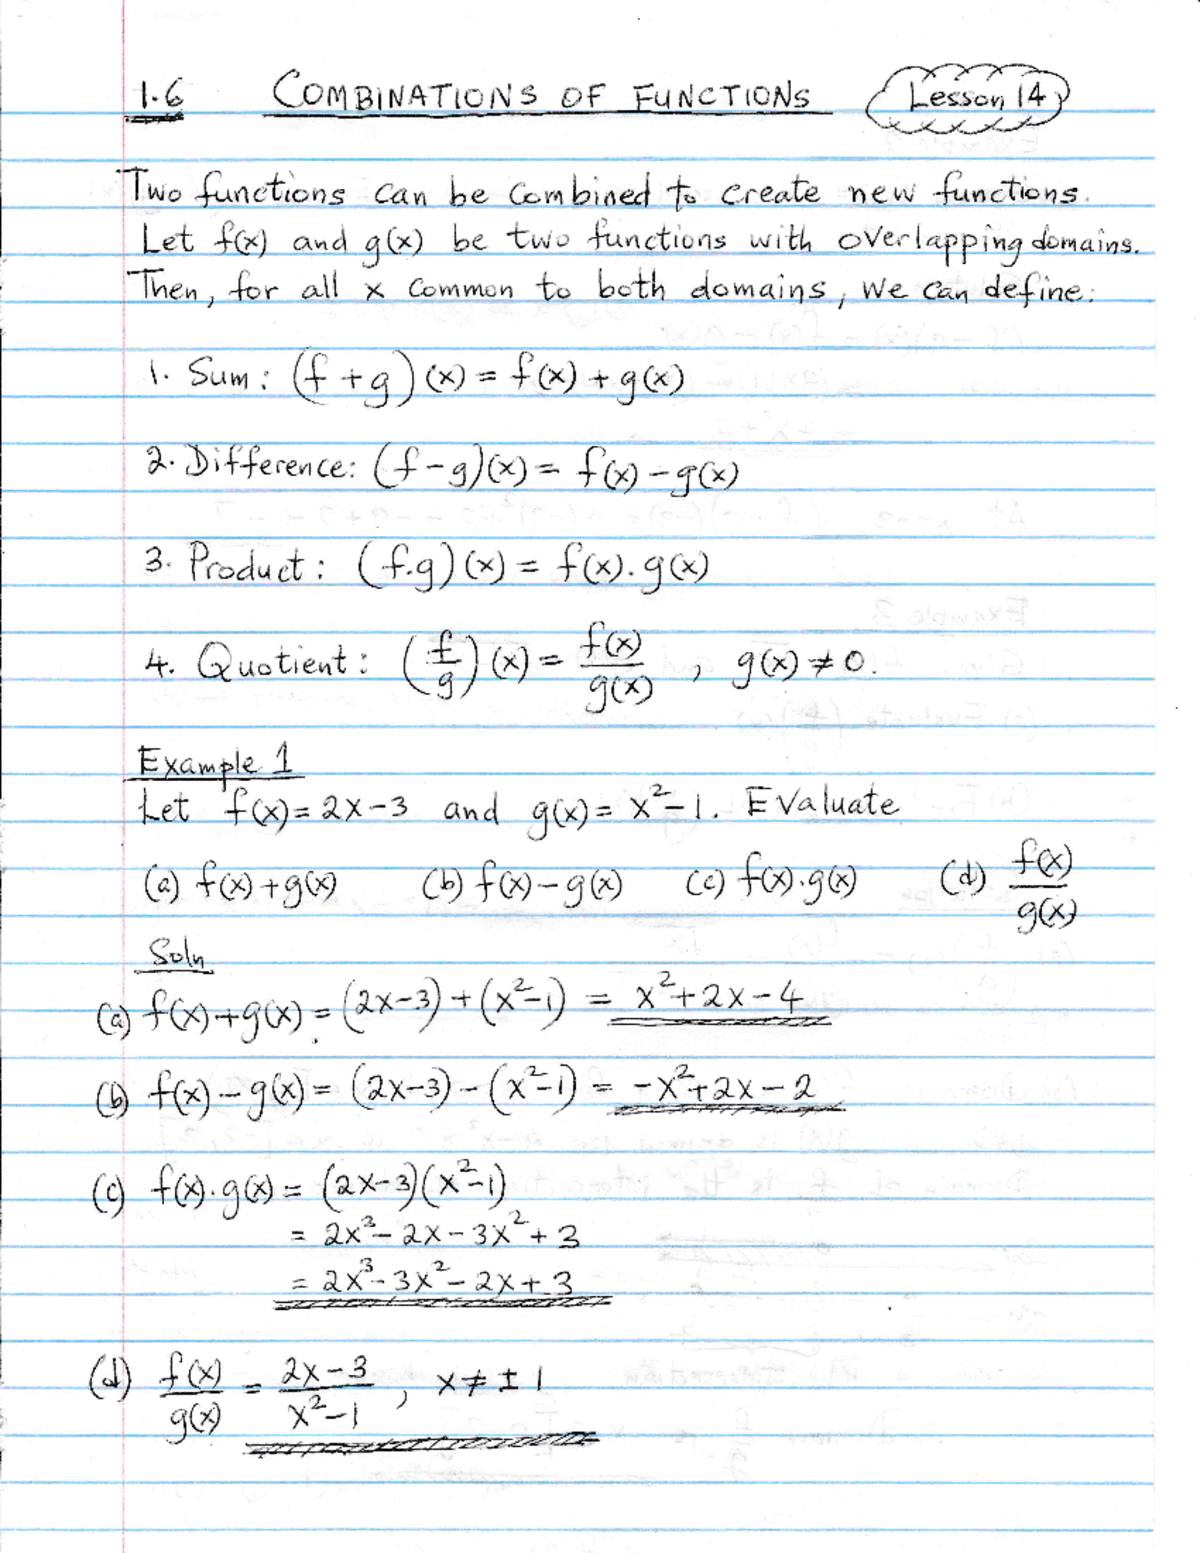 1.6 COMBINATIONS OF FUNCTIONS Lesson 14
Two functions can be combined to create new functions.
Let f(x) and g(x) be two functions with overlapping domains.
Then, for all x common to both domains, we can define:
1. Sum: (f+g)(x) = f(x) + g(x)
2. Difference: (f-g)(x) = f(x) - g(x)
3. Product: (f.g)(x) = f(x).g(x)
4. Quotient: (f/g)(x) = f(x)/g(x), g(x) ≠ 0.
Example 1
Let f(x) = 2x-3 and g(x) = x²-1. Evaluate
(a) f(x)+g(x) (b) f(x)-g(x) (c) f(x).g(x) (d) f(x)/g(x)
Soln
(a) f(x)+g(x) = (2x-3)+(x²-1) = x²+2x-4
(b) f(x)-g(x) = (2x-3)-(x²-1) = -x²+2x-2
(c) f(x).g(x) = (2x-3)(x²-1)
= 2x³-2x-3x²+3
= 2x³-3x²-2x+3
(d) f(x)/g(x) = 2x-3/x²-1, x ≠ ±1